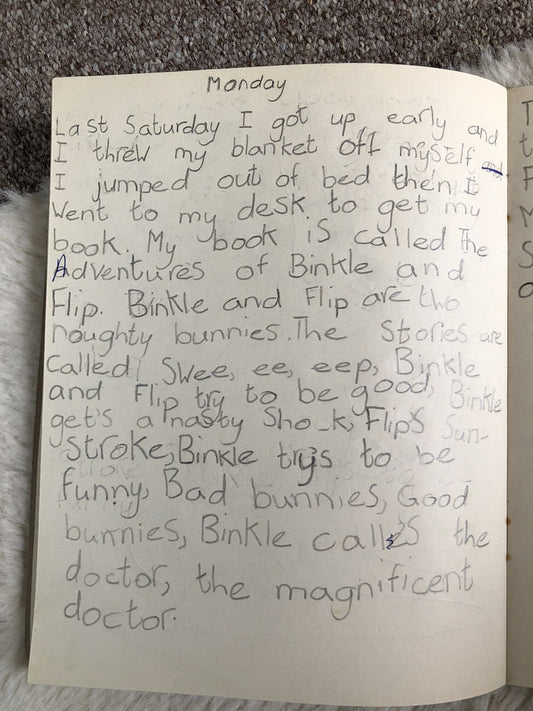 Monday
Last Saturday I got up early and
I threw my blanket off myself
I jumped out of bed then I
Went to my desk to get my
book. My book is called The
Adventures of Binkle and
Flip. Binkle and Flip are two
noughty bunnies. The Stories are
Called, Swee, ee, eep, Binkle
and Flip try to be good, Binkle
get's a nasty Sho_k, Flip's Sun-
Stroke, Binkle trys to be
funny, Bad bunnies, Good
bunnies, Binkle calles the
doctor, the magnificent
doctor.